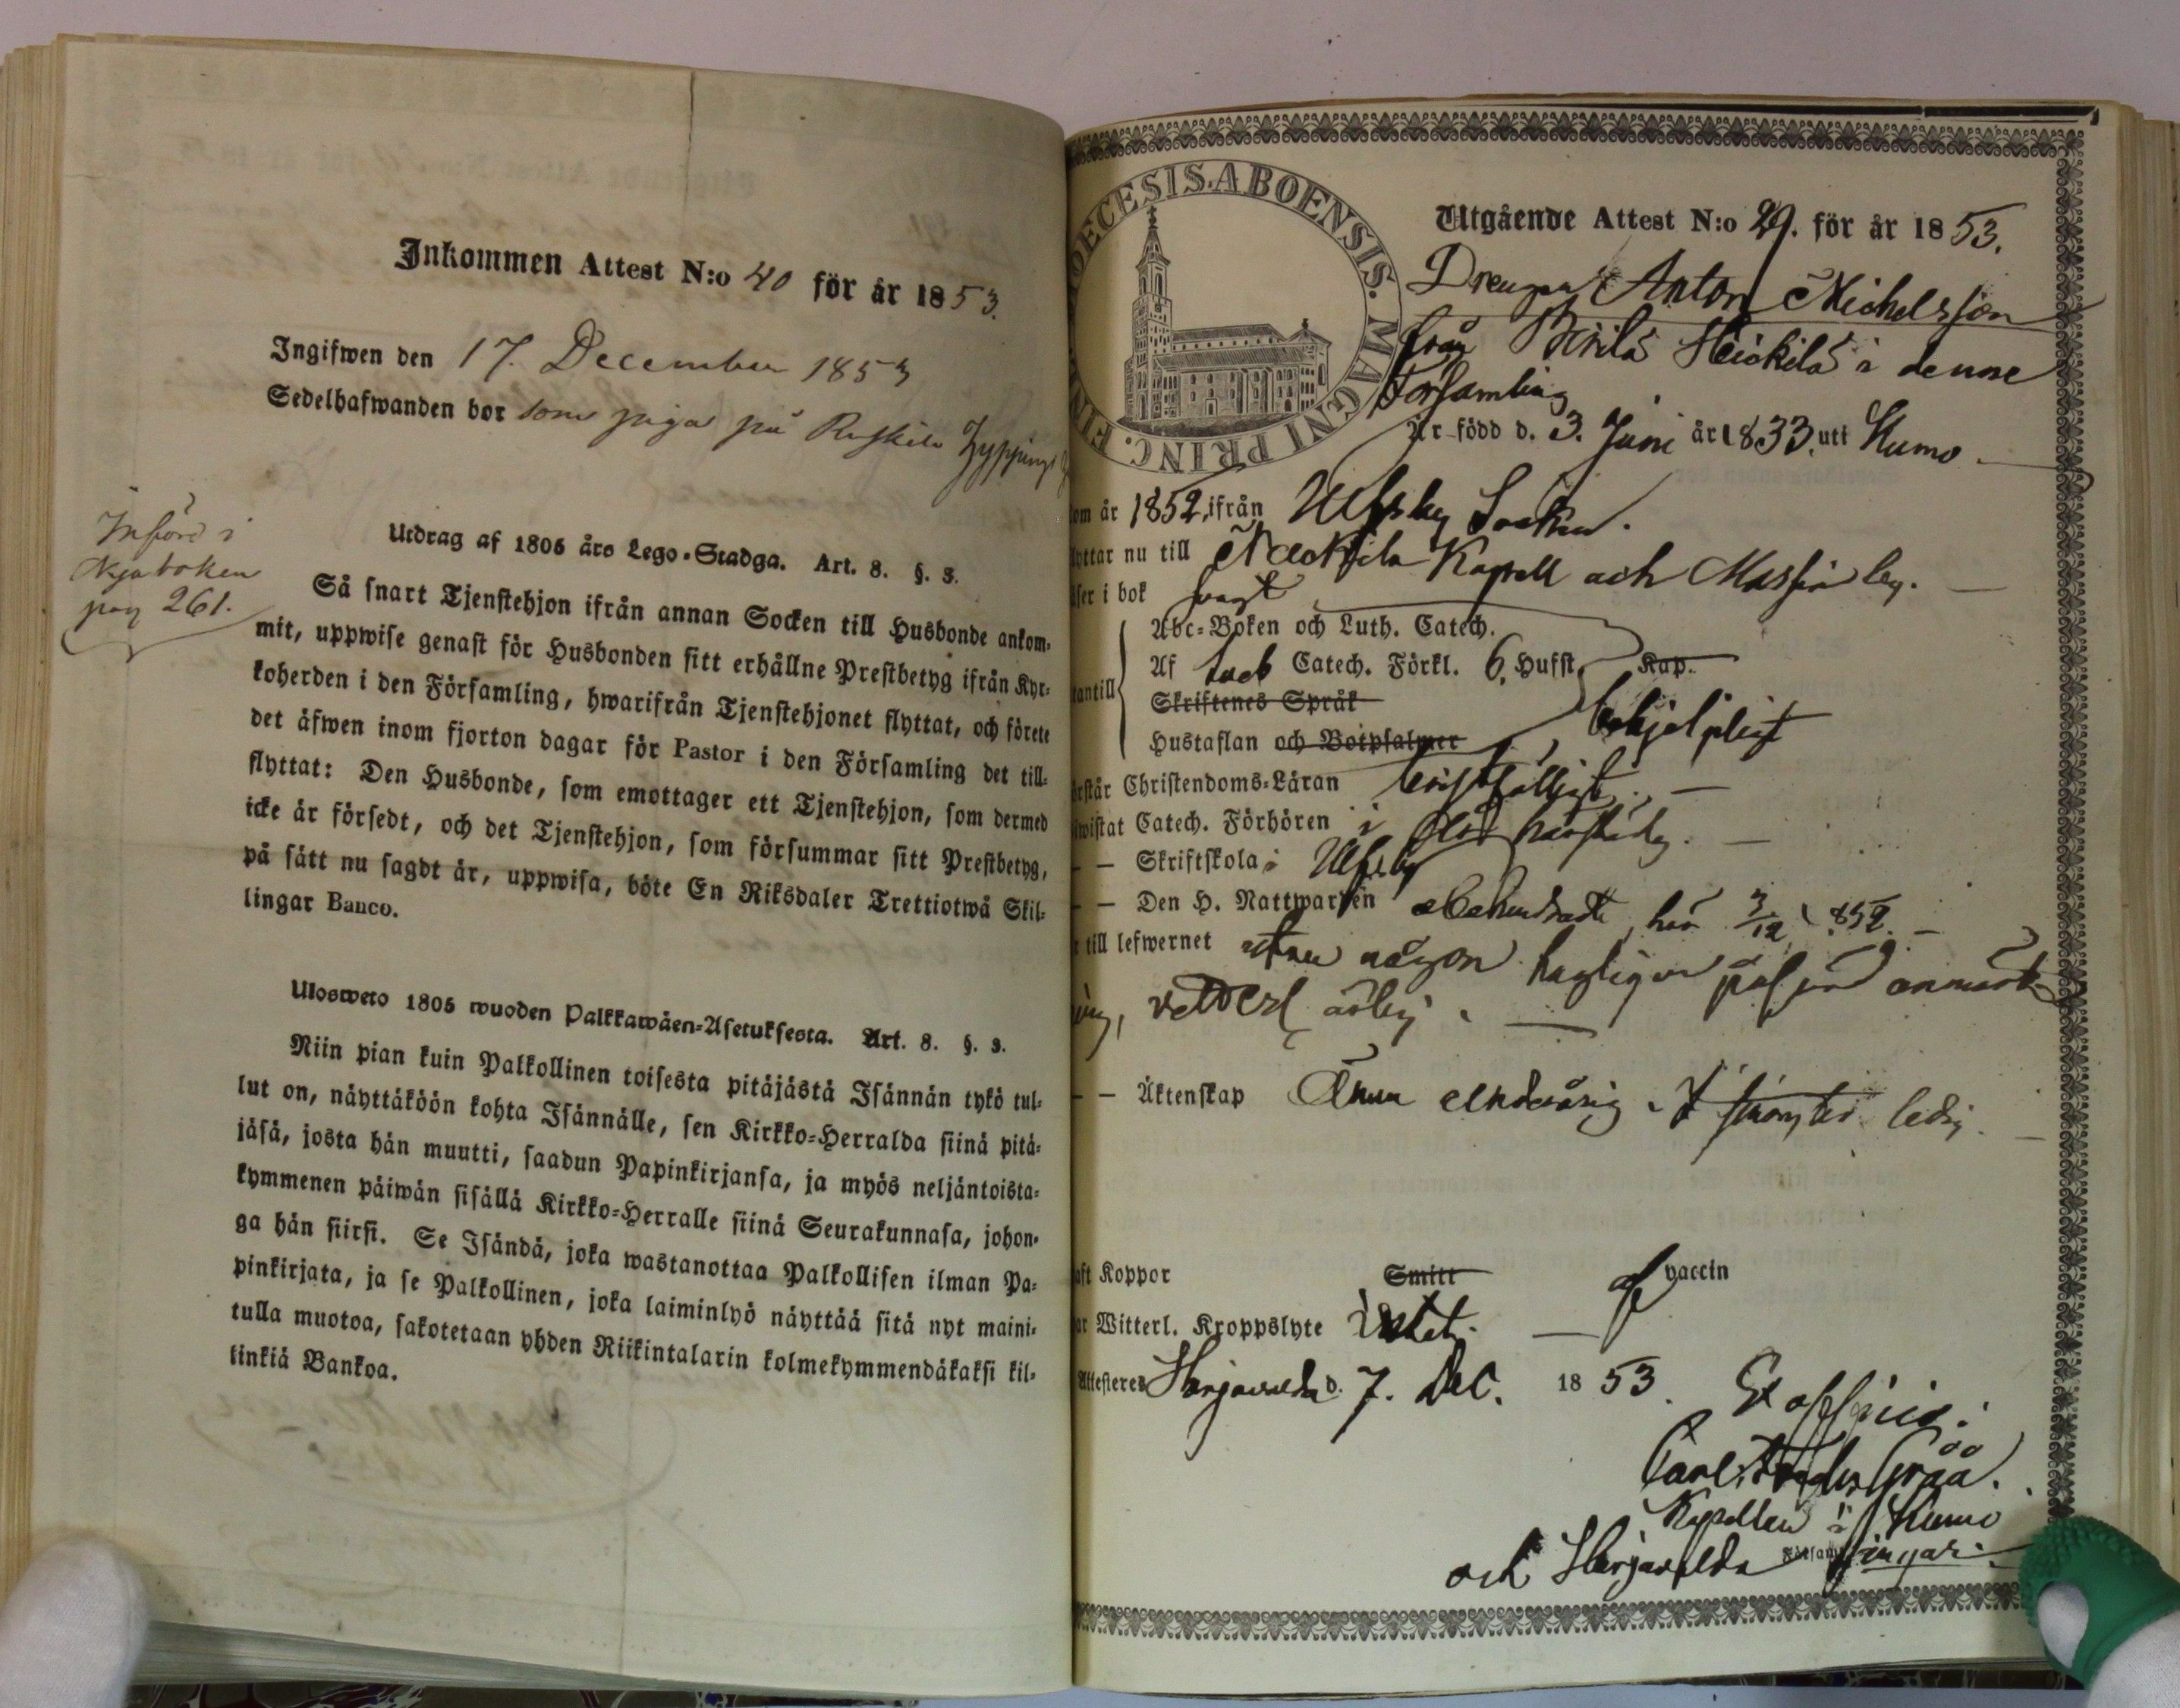 Inkommen Attest N:o 40 för år 1853.
Ingifwen den 17. December 1853
Sedelhafwanden bor som piga på
Införd i
Nya boken
pag 261.
Utdrag af 1805 års Lego-Stadga. Art. 8. §. 3.
Så snart Tjenstehjon ifrån annan Socken till Husbonde ankom-
mit, uppwise genast för Husbonden sitt erhållne Prestbetyg ifrån Kyr-
koherden i den Församling, hwarifrån Tjenstehjonet flyttat, och förete
det äfwen inom fjorton dagar för Pastor i den Församling det till-
flyttat: Den Husbonde, som emottager ett Tjenstehjon, som dermed
icke är försedt, och det Tjenstehjon, som försummar sitt Prestbetyg,
på sätt nu sagdt är, uppwisa, böte En Riksdaler Trettiotwå Skil-
lingar Banco.
Ulosweto 1805 wuoden Palkkawäen-Asetuksesta. Art. 8. §. 3.
Niin pian kuin Palkollinen toisesta pitäjästä Isännän tykö tul-
lut on, näyttäköön kohta Isännälle, sen Kirkko-Herralda siinä pitä-
jäsä, josta hän muutti, saadun Papinkirjansa, ja myös neljäntoista-
kymmenen päiwän sisällä Kirkko-Herralle siinä Seurakunnasa, johon-
ga hän siirsi. Se Isändä, joka wastanottaa Palkollisen ilman Pa-
pinkirjata, ja se Palkollinen, joka laiminlyö näyttää sitä nyt maini-
tulla muotoa, sakotetaan yhden Riikintalarin kolmekymmendäkaksi kil-
linkiä Bankoa.
DIOECESIS. ABOENSIS. MAGNI PRINC. FIN
Utgående Attest N:o 29. för år 1853.
Drengen Anton Michelsson
från Heickilä i denne
Församling
Är född d. 3. Juni år 1833. uti Kumo
om år 1852, ifrån Ulfsby Socken.
lyttar nu till Kapell och
äser i bok svagt
Abc-Boken och Luth. Catech.
antill Af Catech. Förkl. 6. Hufst. Kap.
Skriftenes Språk
Hustaflan och Botpsalmer
behjelpligt
örstår Christendoms-Läran enfaldigt
wistat Catech. Förhören i
— — Skriftskola i Ulfsby
— — Den H. Nattwarden här 3/12 1852.
r till lefwernet utan någon
— — Äktenskap ledig.
aft Koppor Smitt af vaccin
ar Witterl. Kroppslyte Intet.
Attesteres Harjavalda d. 7. Dec. 1853. Ex officio:
Carl Gråå.
Kapellan i Kumo
och Harjavalda Församlingar.